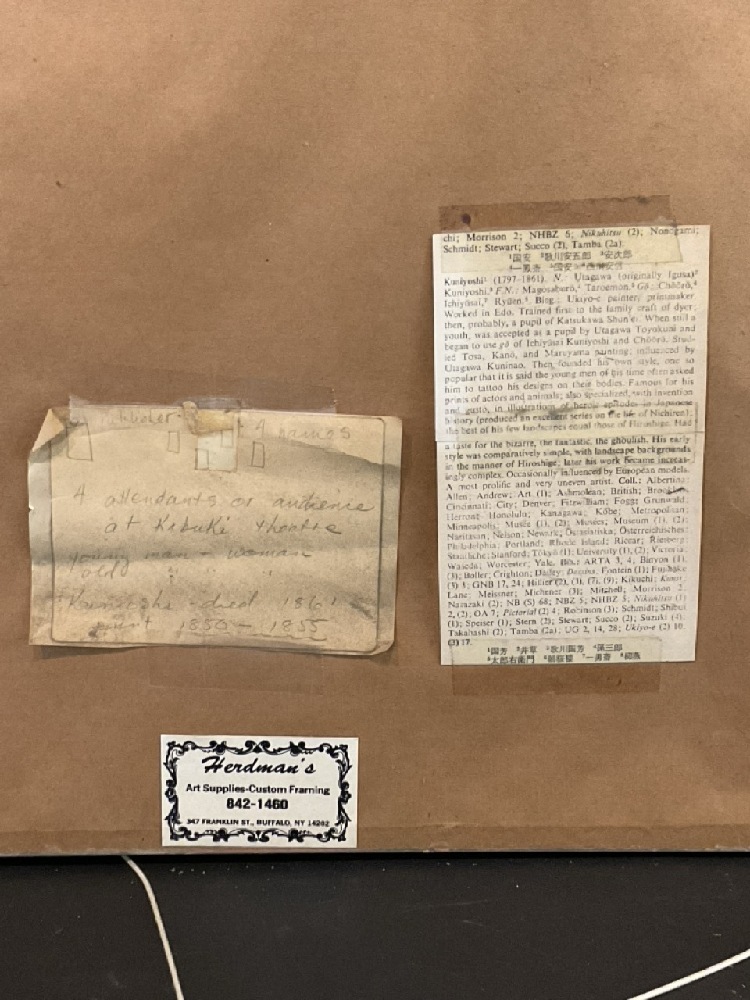 4 attendants or audience
at Kabuki theatre
young man - woman
old " "
died 1861
print 1850 - 1855
chi; Morrison 2; NHBZ 5; Nikuhitsu (2); Nonogami;
Schmidt; Stewart; Succo (2), Tamba (2a).
Kuniyoshi¹ (1797-1861). N.: Utagawa (originally Igusa)²
Kuniyoshi.³ F.N.: Magosaburō,⁴ Taroemon.⁵ Gō: Chōōrō,⁶
Ichiyūsai,⁷ Ryūen.⁸ Biog.: Ukiyo-e painter, printmaker.
Worked in Edo. Trained first to the family craft of dyer;
then, probably, a pupil of Katsukawa Shun'ei. When still a
youth, was accepted as a pupil by Utagawa Toyokuni and
began to use gō of Ichiyūsai Kuniyoshi and Chōōrō. Stud-
ied Tosa, Kanō, and Maruyama painting; influenced by
Utagawa Kuninao. Then founded his own style, one so
popular that it is said the young men of his time often asked
him to tattoo his designs on their bodies. Famous for his
prints of actors and animals; also specialized, with invention
and gusto, in illustrations of heroic episodes in Japanese
history (produced an excellent series on the life of Nichiren);
the best of his few landscapes equal those of Hiroshige. Had
a taste for the bizarre, the fantastic, the ghoulish. His early
style was comparatively simple, with landscape backgrounds
in the manner of Hiroshige; later his work became increas-
ingly complex. Occasionally influenced by European models.
A most prolific and very uneven artist. Coll.: Albertina;
Allen; Andrew; Art (1); Ashmolean; British; Brooklyn;
Cincinnati; City; Denver; Fitzwilliam; Fogg; Grunwald;
Herron; Honolulu; Kanagawa; Kōbe; Metropolitan;
Minneapolis; Musée (1), (2); Museo; Museum (1), (2);
Naritasan; Nelson; Newark; Östasiatiska; Österreichisches;
Philadelphia; Portland; Rhode Island; Riccar; Rietberg;
Staatliche; Stanford; Tōkyō (1); University (1), (2); Victoria;
Waseda; Worcester; Yale. Bib.: ARTA 3, 4; Binyon (1),
(3); Boller; Crighton; Dailey; Dessins; Fontein (1); Fujikake
(3) 5; GNB 17, 24; Hillier (2), (3), (7), (9); Kikuchi;
Lane; Meissner; Michener (3); Mitchell; Morrison 2;
Narazaki (2); NB (S) 68; NBZ 5; NHBZ 5; Nikuhitsu (1)
2, (2); OA 7; Pictorial (2) 4; Robinson (3); Schmidt; Shibui
(1); Speiser (1), Stern (2); Stewart; Succo (2); Suzuki (4);
Takahashi (2); Tamba (2a); UG 2, 14, 28; Ukiyo-e (2) 10,
(3) 17.
¹国芳 ²井草 ³歌川国芳 ⁴孫三郎
⁵太郎右衛門 ⁶朝桜楼 ⁷一勇斎 ⁸柳燕
Herdman's
Art Supplies-Custom Framing
842-1460
347 FRANKLIN ST., BUFFALO, NY 14202